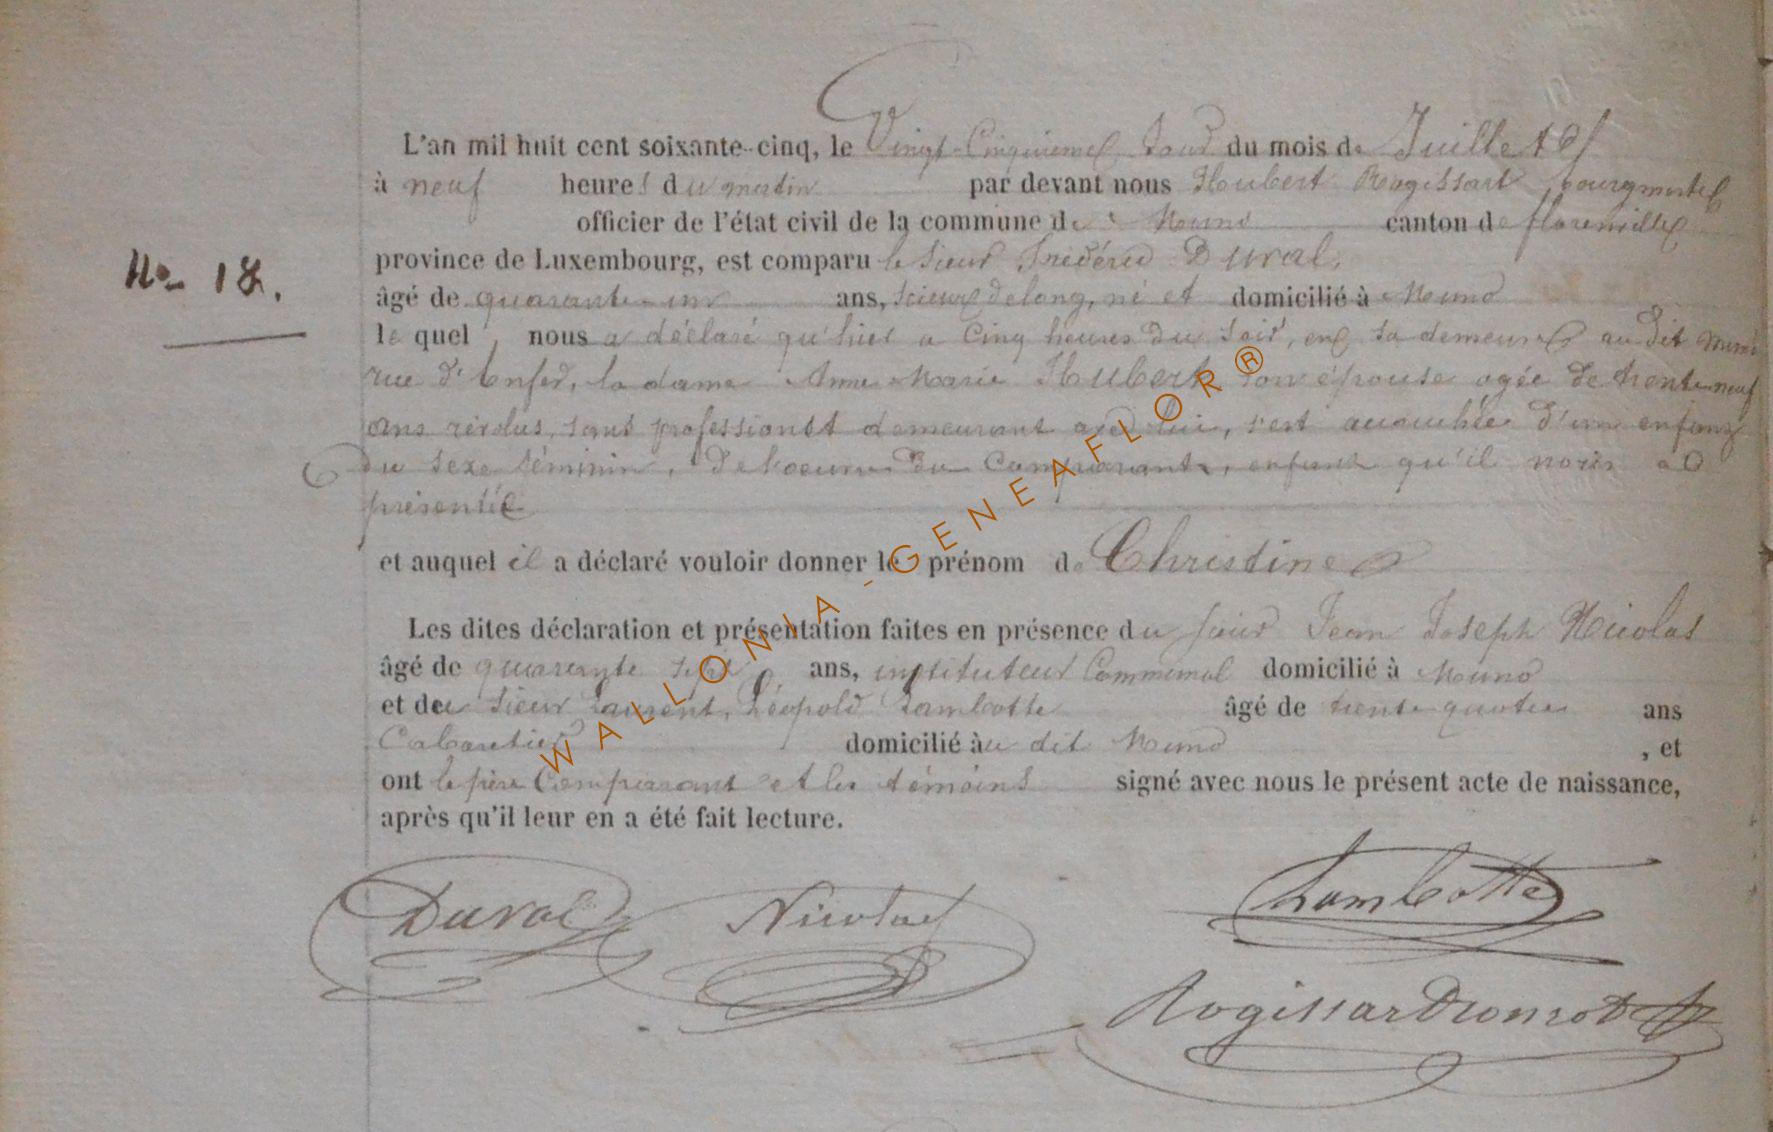 L'an mil huit cent soixante-cinq, le Vingt-Cinquieme Jour du mois de Juillet
à neuf heures du matin par devant nous Houbert Rogissart bourgmestre
officier de l'état civil de la commune de Muno canton de florenville
province de Luxembourg, est comparu le sieur Frédéric Duval,
N° 18.
âgé de quarante-un ans, scieur de long, né et domicilié à Muno
le quel, nous a déclaré qu'hier a Cinq heures du Soir, en sa demeure au dit Muno
rue d'Enfer, la dame Anne Marie Hubert son épouse agée de trente neuf
ans révolus, sans profession et demeurant avec lui, s'est accouchée d'un enfant
du sexe féminin, de l'oeuvre du Comparant, enfant qu'il nous a
présenté
et auquel il a déclaré vouloir donner le prénom de Christine
Les dites déclaration et présentation faites en présence du sieur Jean Joseph Nicolas
âgé de quarante sept ans, instituteur Communal domicilié à Muno
et du sieur Laurent, Léopold Lambotte âgé de trente quatre ans
Cabaretier domicilié au dit Muno, et
ont le père Comparant et les témoins signé avec nous le présent acte de naissance,
après qu'il leur en a été fait lecture.
Duval Nicolas Lambotte
WALLONIA-GENEAFLOR®